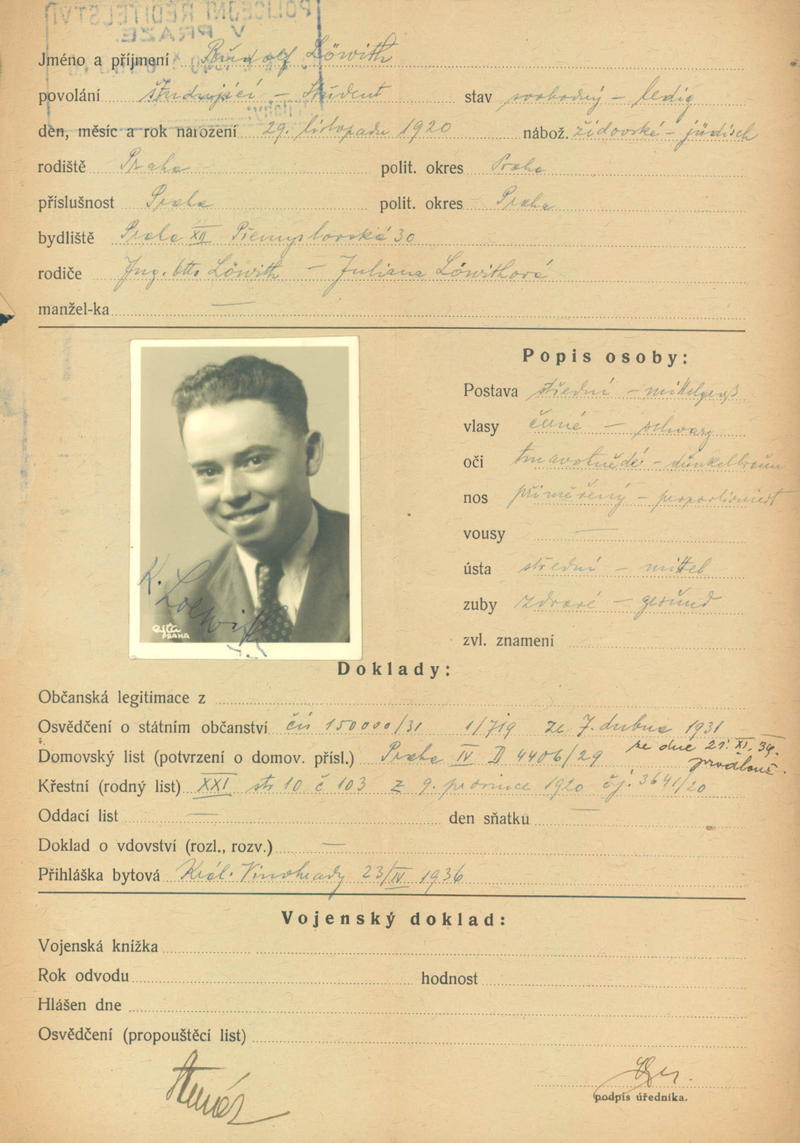 POLICEJNÍ ŘEDITELSTVÍ
V PRAZE.
Jméno a příjmení Rudolf Löwith
povolání študující – Student stav svobodný – ledig
den, měsíc a rok narození 29. listopadu 1920 nábož. židovské – jüdisch
rodiště Praha polit. okres Praha
příslušnost Praha polit. okres Praha
bydliště Praha XII Přemyslovská 30
rodiče Ing. Otto Löwith – Juliana Löwithová
manžel-ka —
Popis osoby:
Postava střední – mittelgroß
vlasy černé – schwarz
oči tmavohnědé – dunkelbraun
nos přiměřený – proportioniert
vousy —
ústa střední – mittel
zuby zdravé – gesund
zvl. znamení
PRAHA
Doklady:
Občanská legitimace z
Osvědčení o státním občanství čís 150000/31 1/719 ze 7. dubna 1931
Domovský list (potvrzení o domov. přísl.) Praha IV D 4406/29 ze dne 21. XI. 39.
Křestní (rodný list) XXI str 10 č 103 z 9. prosince 1920 čj. 3641/20
Oddací list — den sňatku —
Doklad o vdovství (rozl., rozv.) —
Přihláška bytová Král. Vinohrady 23/IV 1936
Vojenský doklad:
Vojenská knížka
Rok odvodu hodnost
Hlášen dne
Osvědčení (propouštěcí list)
podpis úředníka.